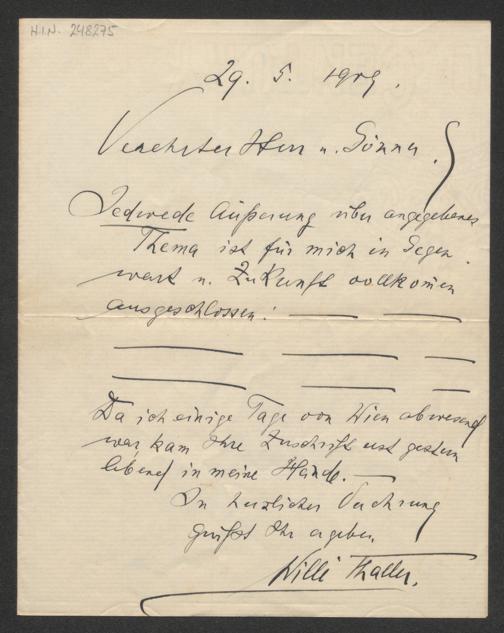 H.I.N. 248275
29. 5. 1909.
Verehrter Herr u. Gönner!
Jedwede Äußerung über angegebenes
Thema ist für mich in Gegen-
wart u. Zukunft vollkom̅en
ausgeschlossen!
Da ich einige Tage von Wien abwesend
war, kam Ihre Zuschrift erst gestern
abend in meine Hände.
In herzlicher Verehrung
grüßt Ihr ergeben
Willi Thaller.